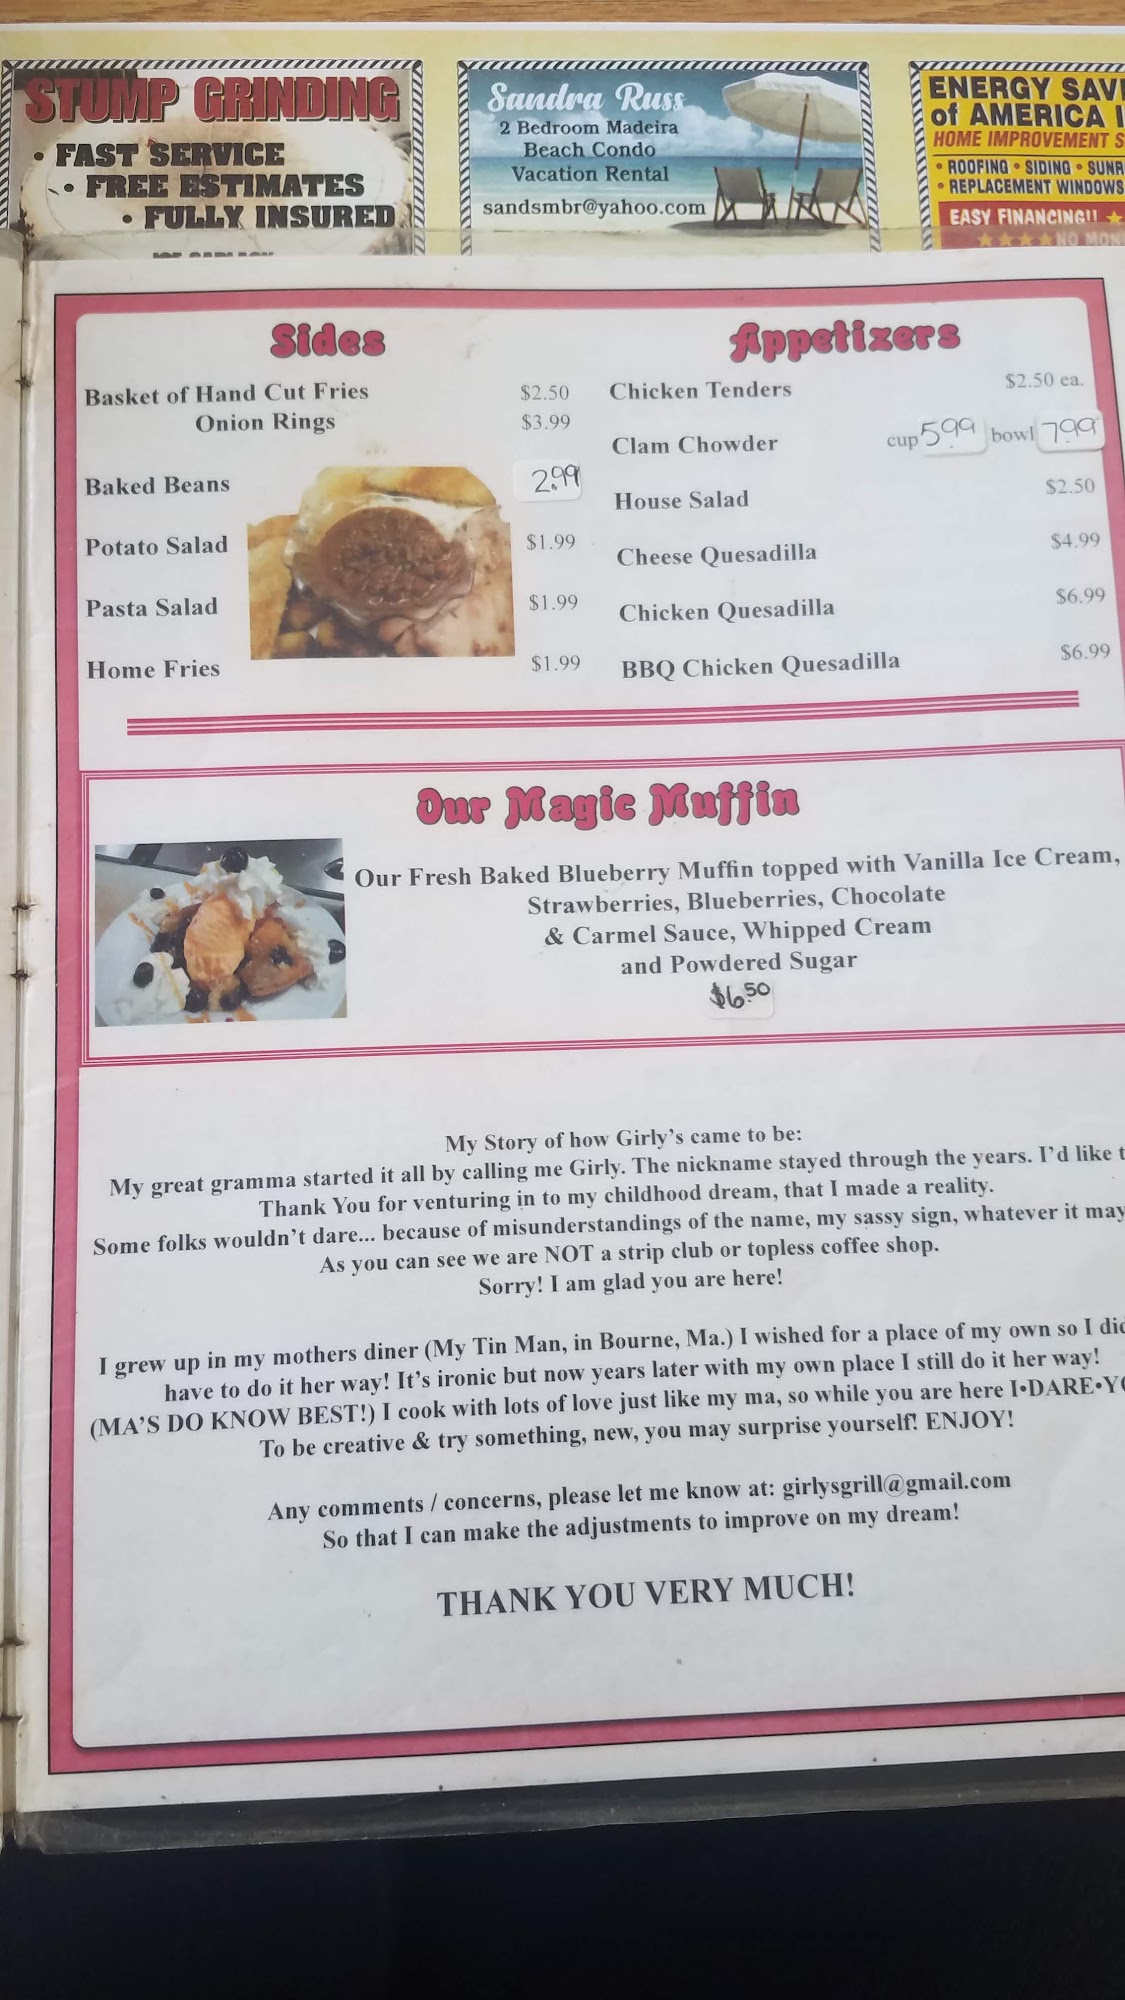 STUMP GRINDING
• FAST SERVICE
• FREE ESTIMATES
• FULLY INSURED
Sandra Russ
2 Bedroom Madeira
Beach Condo
Vacation Rental
sandsmbr@yahoo.com
ENERGY
of AMERICA
HOME IMPROVEMENT
• ROOFING • SIDING •
• REPLACEMENT WINDOWS
EASY FINANCING!!
NO
Sides
Basket of Hand Cut Fries $2.50
Onion Rings $3.99
Baked Beans 2.99
Potato Salad $1.99
Pasta Salad $1.99
Home Fries $1.99
Appetizers
Chicken Tenders $2.50 ea.
Clam Chowder cup 5.99 bowl 7.99
House Salad $2.50
Cheese Quesadilla $4.99
Chicken Quesadilla $6.99
BBQ Chicken Quesadilla $6.99
Our Magic Muffin
Our Fresh Baked Blueberry Muffin topped with Vanilla Ice Cream,
Strawberries, Blueberries, Chocolate
& Carmel Sauce, Whipped Cream
and Powdered Sugar
$6.50
My Story of how Girly's came to be:
My great gramma started it all by calling me Girly. The nickname stayed through the years. I'd like
Thank You for venturing in to my childhood dream, that I made a reality.
Some folks wouldn't dare... because of misunderstandings of the name, my sassy sign, whatever it may
As you can see we are NOT a strip club or topless coffee shop.
Sorry! I am glad you are here!
I grew up in my mothers diner (My Tin Man, in Bourne, Ma.) I wished for a place of my own so I
have to do it her way! It's ironic but now years later with my own place I still do it her way!
(MA'S DO KNOW BEST!) I cook with lots of love just like my ma, so while you are here I•DARE•
To be creative & try something, new, you may surprise yourself! ENJOY!
Any comments / concerns, please let me know at: girlysgrill@gmail.com
So that I can make the adjustments to improve on my dream!
THANK YOU VERY MUCH!